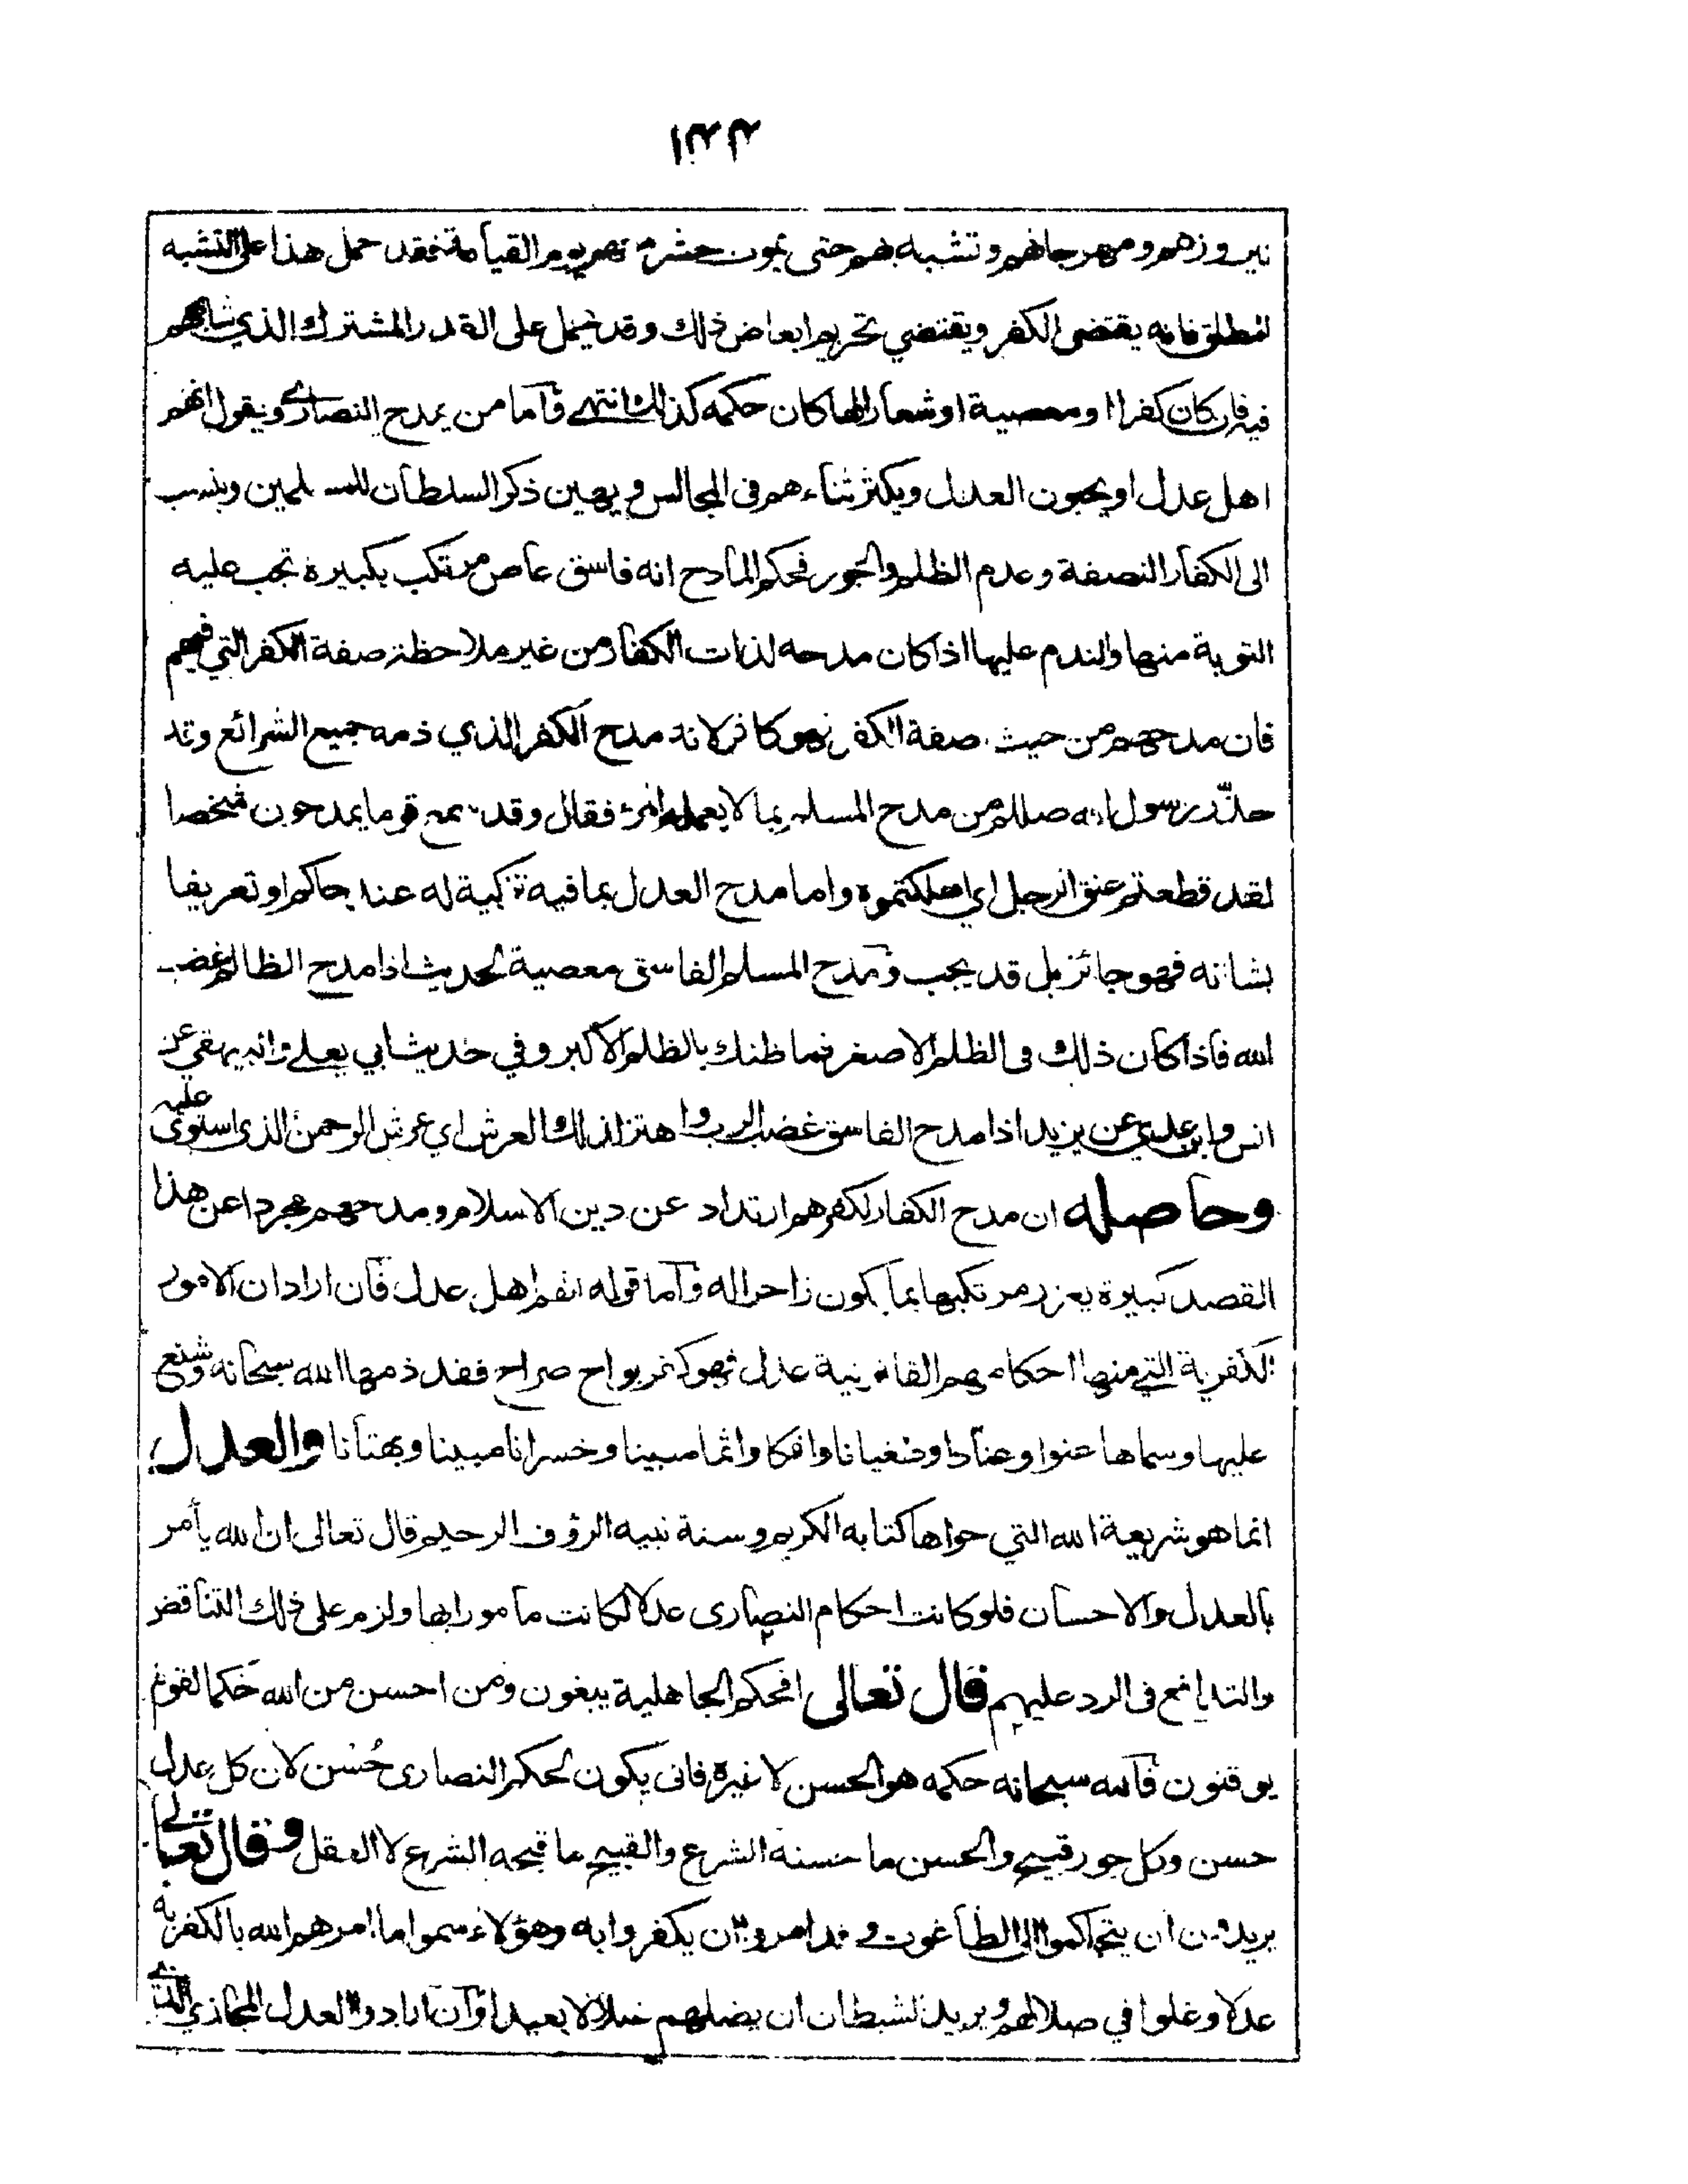 نيروزهم ومهرجانهم وتشبه بهم حتى يموت حشر معهم يوم القيامة فقد حمل هذا على التشبه
المطلق فانه يقتضى الكفر ويقتضي تحريم ابعاض ذلك وقد يحمل على القدر المشترك الذي شابههم
فيه فان كان كفرا او معصية او شعارا لها كان حكمه كذلك انتهى فآما من يمدح النصارى ويقول انهم
اهل عدل او يحبون العدل ويكثر ثناءهم فى المجالس و يهين ذكر السلطان للمسلمين وينسب
الى الكفار النصفة وعدم الظلم والجور فحكم المادح انه فاسق عاص مرتكب بكبيرة تجب عليه
التوبة منها والندم عليها اذا كان مدحه لذات الكفار من غير ملاحظة صفة الكفر التي فيهم
فان مدحهم من حيث صفة الكفر فهو كافر لانه مدح الكفر الذي ذمه جميع الشرائع وقد
حذّر رسول الله صللم من مدح المسلم بما لا يعمله المرء فقال وقد سمع قوما يمدحون شخصا
لقد قطعتم عنق الرجل اي اهلكتموه واما مدح العدل بما فيه تزكية له عند حاكم او تعريفا
بشانه فهو جائز بل قد يجب ومدح المسلم الفاسق معصية لحديث اذا مدح الظالم غضب
الله فاذا كان ذلك فى الظلم الاصغر فما ظنك بالظلم الاكبر وفي حديث ابي يعلى والبيهقي عن
انس وابن عدي عن بريد اذا مدح الفاسق غضب الرب واهتز لذلك العرش اي عرش الرحمن الذى استوى عليه
وحاصله ان مدح الكفار لكفرهم ارتداد عن دين الاسلام ومدحهم مجردا عن هذا
القصد كبيرة يعزر مرتكبها بما يكون زاجرا له وآما قوله انهم اهل عدل فآن اراد ان الامور
الكفرية التي منها احكامهم القانونية عدل فهو كفر بواح صراح فقد ذمها الله سبحانه وشنع
عليها وسماها عتوا وعنادا وطغيانا وافكا واثما مبينا وخسرانا مبينا وبهتانا والعدل
انما هو شريعة الله التي حواها كتابه الكريم وسنة نبيه الرؤف الرحيم قال تعالى ان الله يأمر
بالعدل والاحسان فلو كانت احكام النصارى عدلا لكانت مامورا بها ولزم على ذلك التناقض
والتدافع فى الرد عليهم قال تعالى افحكم الجاهلية يبغون ومن احسن من الله حكما لقوم
يوقنون فآلله سبحانه حكمه هو الحسن لا غيره فانى يكون لحكم النصارى حُسن لان كل عدل
حسن وكل جور قبيح والحسن ما حسنه الشرع والقبيح ما قبحه الشرع لا العقل وقال تعالى
يريدون ان يتحاكموا الى الطاغوت وقد امروا ان يكفروا به وهؤلاء سموا ما امرهم الله بالكفر به
عدلا وغلوا في ضلالهم ويريد الشيطان ان يضلهم ضلالا بعيدا وآن ارادوا العدل المجازي الذي